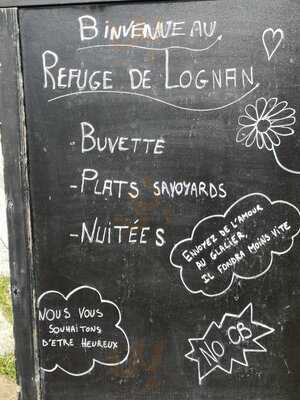 BINVENUE AU
REFUGE DE LOGNAN
- BUVETTE
- PLATS SAVOYARDS
- NUITÉES
ENVOYEZ DE L'AMOUR
AU GLACIER
IL FONDRA MOINS VITE
NOUS VOUS
SOUHAITONS
D'ETRE HEUREUX
NO CB